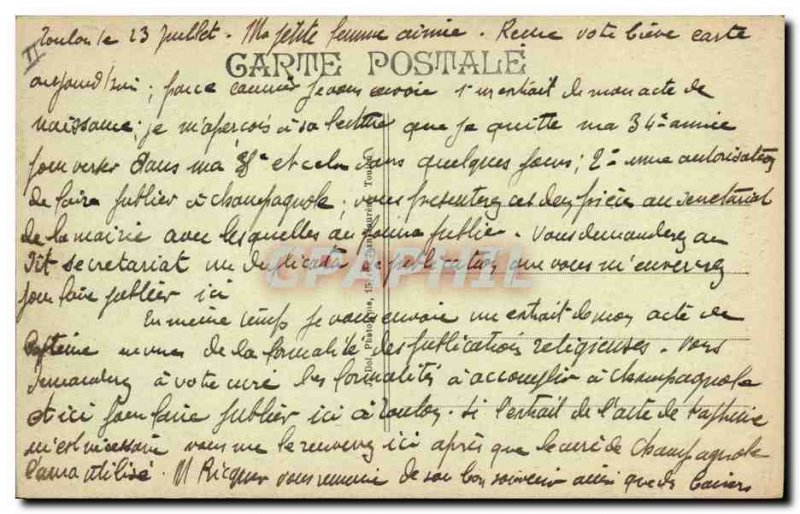 II
Toulon le 23 Juillet - Ma petite femme aimée - Reçue votre brève carte
CARTE POSTALE
aujourd'hui ; parce courrier je vous envoie 1° un extrait de mon acte de
naissance ; je m'aperçois à sa lecture que je quitte ma 34e année
pour verser dans ma 35e et cela dans quelques jours ; 2° une autorisation
de faire publier à Champagnole ; vous présenterez ces deux pièces au secrétariat
de la mairie avec lesquelles on pourra publier - Vous demanderez au
dit secrétariat un duplicata de publication que vous m'enverrez
pour faire publier ici
En même temps je vous envoie un extrait de mon acte de
baptême en vue de la formalité des publications religieuses - Vous
demanderez à votre curé les formalités à accomplir à Champagnole
et ici pour faire publier ici à Toulon - Si l'extrait de l'acte de baptême
m'est nécessaire vous me le renverrez ici après que le curé de Champagnole
l'aura utilisé. M Ricquer vous remercie de son bon souvenir ainsi que de baisers
CPAPHIL